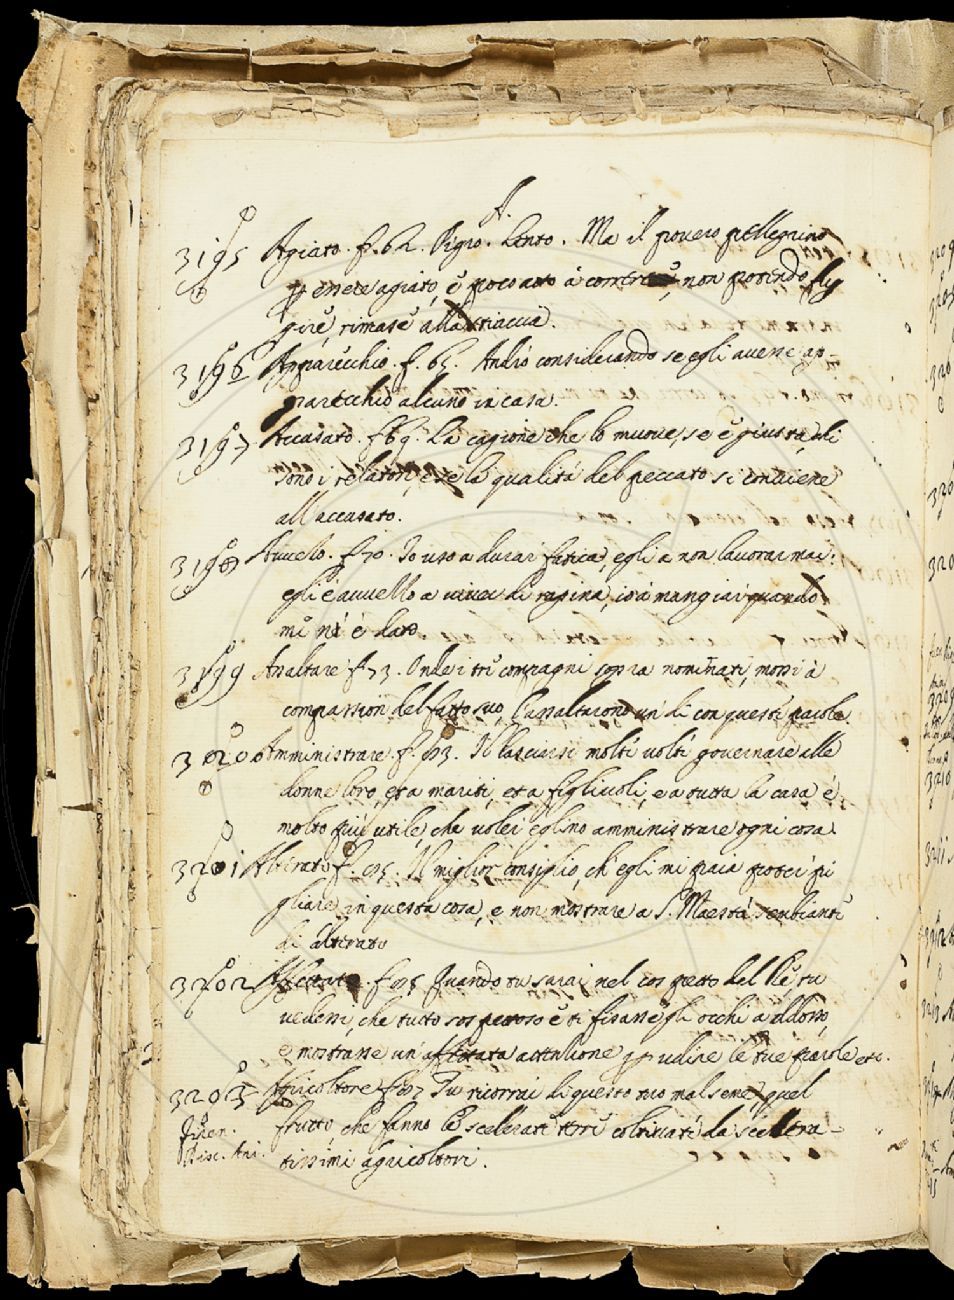 A.
3195 Agiato. f. 62. Pigro. Lento. Ma il povero pellegrino
p essere agiato, e poco atto à correre, non potendo fug
gire, rimase alla stiaccia.
3196 Apparecchio. f. 65. Andrò considerando se egli avesse ap-
parecchio alcuno in casa.
3197 Accusato. f. 69. La cagione che lo muove, se è giusta, chi
sono i relatori, e se la qualità del peccato si conviene
all'accusato.
3198 Avvello. f. 70. Io uso a durar fatica, egli a non lavorar mai:
egli è avvello a viver di rapina, io à mangiar quando
me n'è dato
3199 Assaltare f. 73. Onde i tre compagni sopra nominati, mossi à
compassion del fatto suo, l'assaltarono un dì con queste parole.
3200 Amministrare f. 93. Il lasciarsi molti volti governare alle
donne loro, et a mariti, et a figliuoli, e a tutta la casa è
molto più utile, che voler eglino amministrare ogni cosa.
3201 Alterato f. 95. Il miglior consiglio, ch'egli mi paia poter pi
gliare in questa cosa, e non mostrare a S. Maestà sembiante
di alterato
3202 Affettata. f. 95 Quando tu sarai nel cospetto del Re tu
vedessi, che tutto sospettoso e' ti fissasse gli occhi addosso,
e mostrasse un'affettata attenzione p udire le tue parole etc.
3203 Agricoltore f. 97 Tu ricorrai di questo tuo mal seme, quel
frutto, che fanno le scelerate terre coltivate da scellera-
tissimi agricoltori.
Firen.
Disc. Ani.